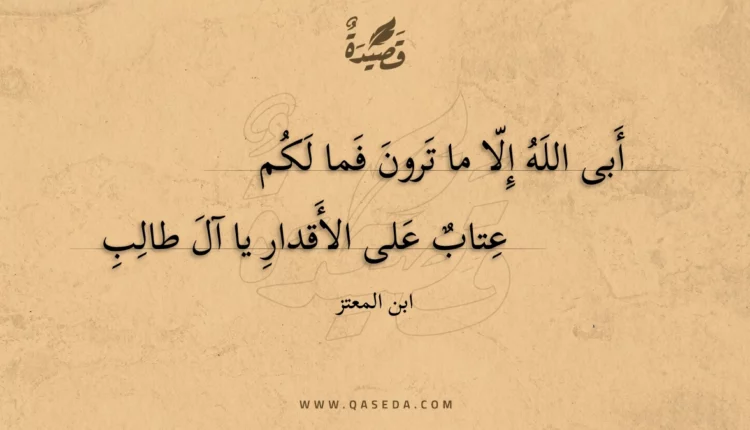 قَصِيدَةٌ
أَبى اللَهُ إِلّا ما تَرونَ فَما لَكُم
عِتابٌ عَلى الأَقدارِ يا آلَ طالِبِ
ابن المعتز
WWW.QASEDA.COM